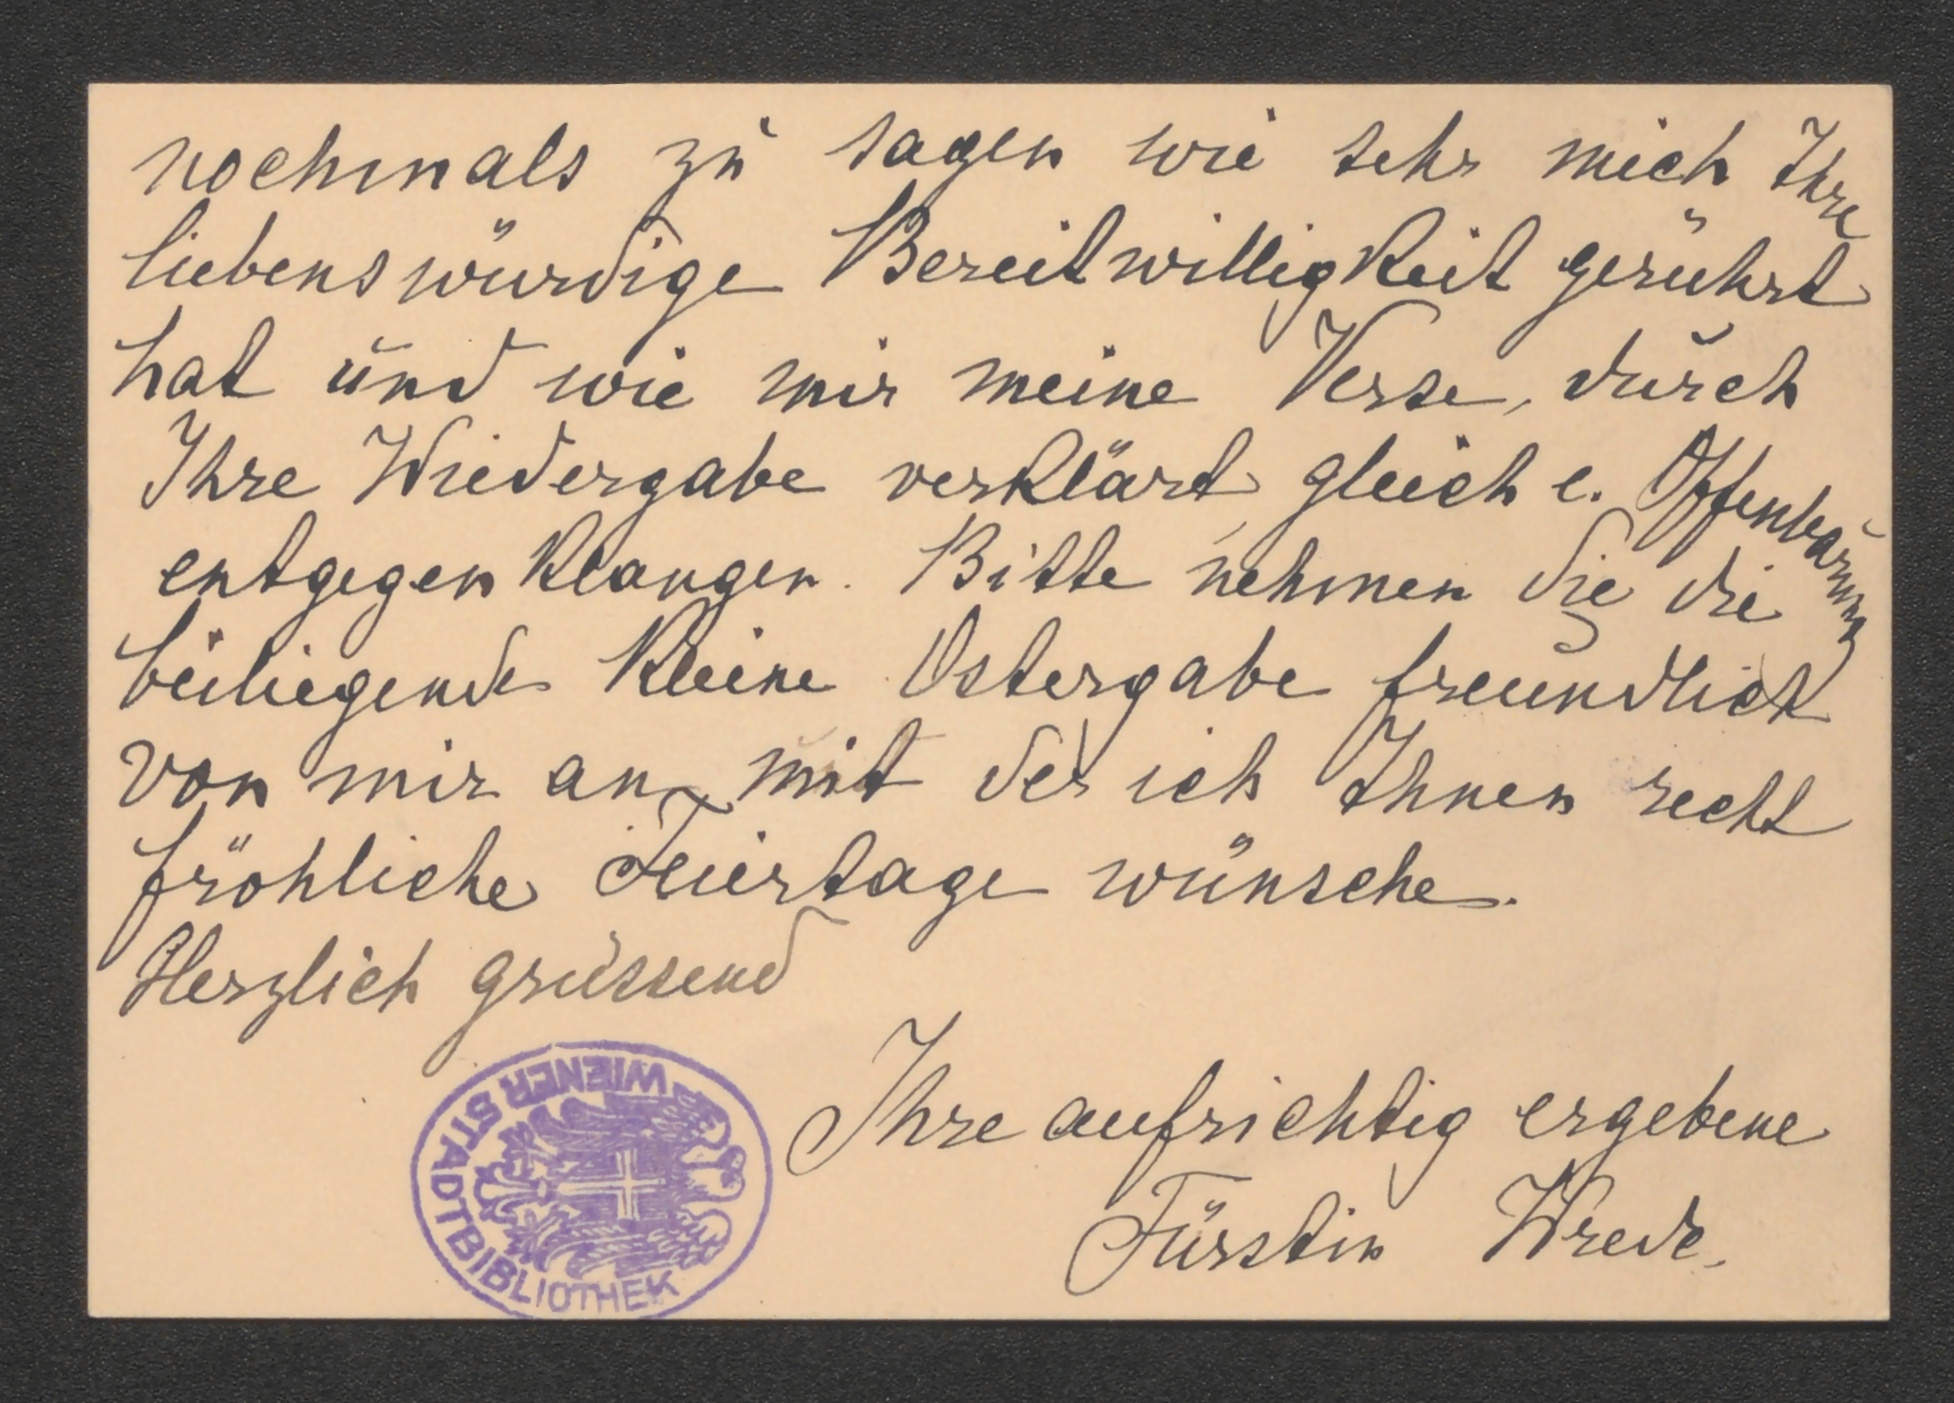 nochmals zu sagen wie sehr mich Ihre
liebenswürdige Bereitwilligkeit gerührt
hat und wie mir meine Verse, durch
Ihre Wiedergabe verklärt gleich e. Offenbarung
entgegen klangen. Bitte nehmen Sie die
beiliegende kleine Ostergabe freundlich
von mir an, mit der ich Ihnen recht
fröhliche Feiertage wünsche.
Herzlich grüssend
Ihre aufrichtig ergebene
Fürstin Wrede.
WIENER STADTBIBLIOTHEK